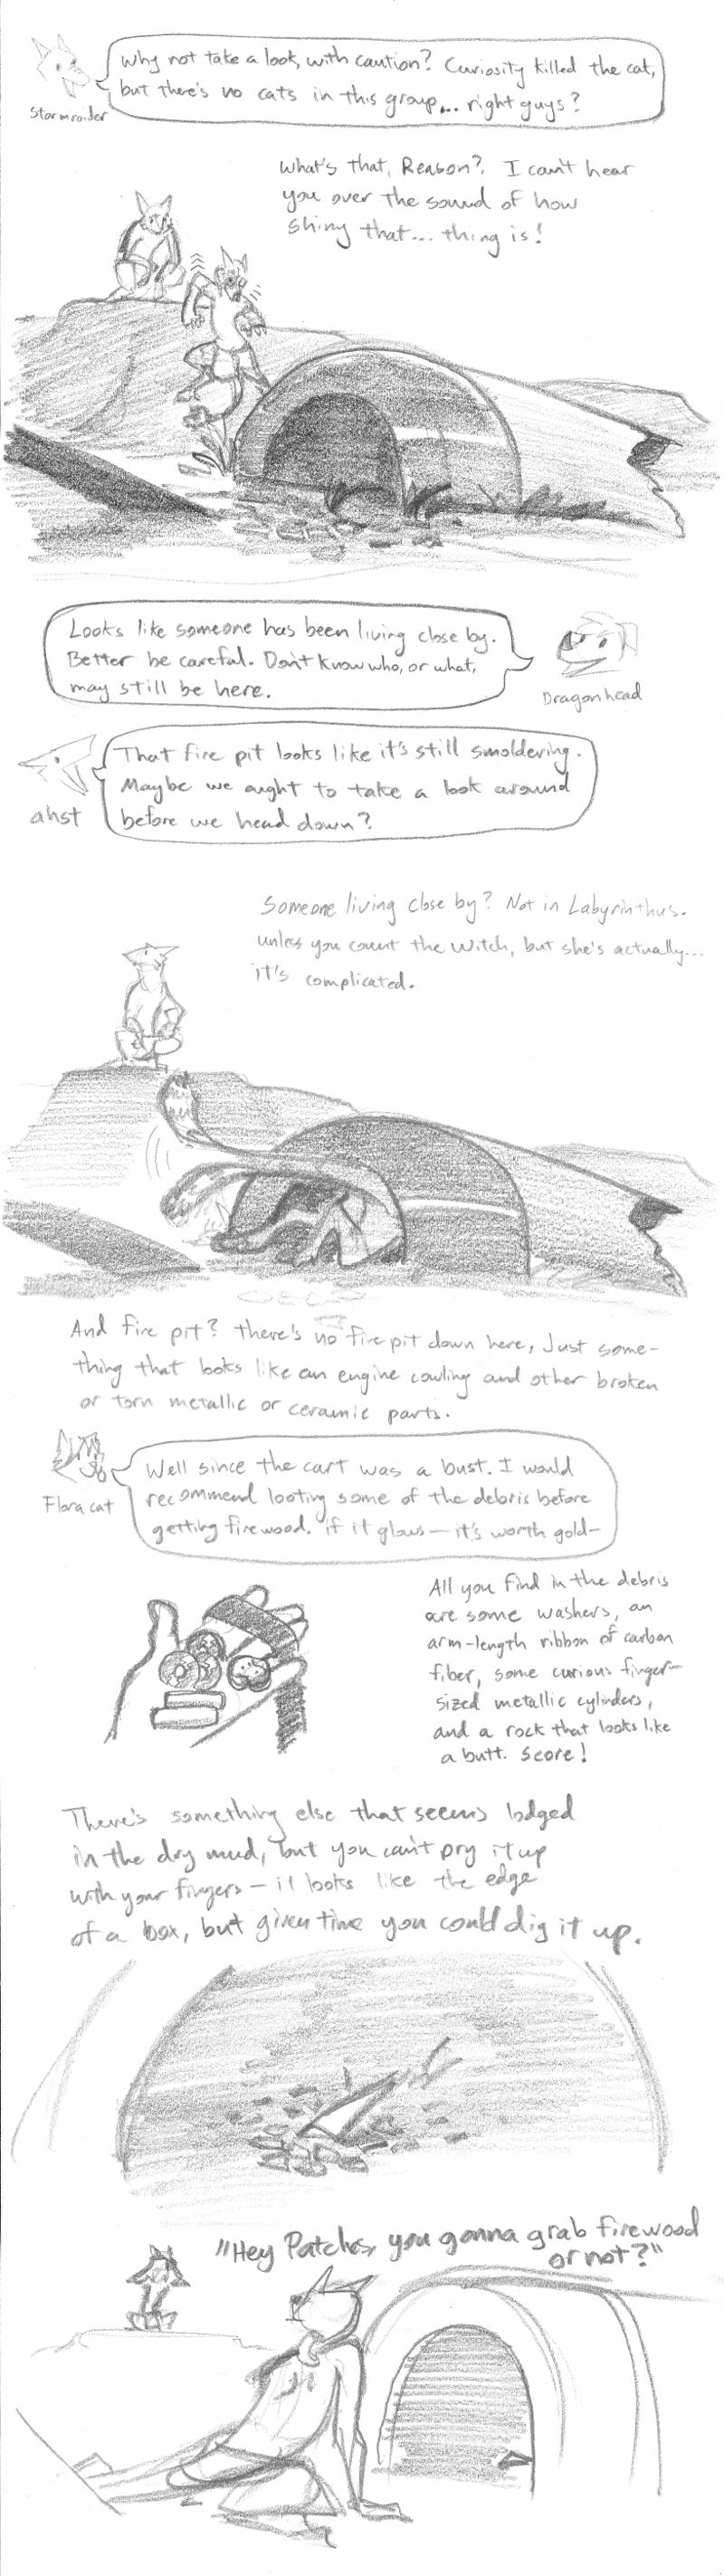 Why not take a look, with caution? Curiosity killed the cat,
but there's no cats in this group... right guys?
Stormraider
What's that, Reason? I can't hear
you over the sound of how
shiny that... thing is!
Looks like someone has been living close by.
Better be careful. Don't know who, or what,
may still be here.
Dragonhead
That fire pit looks like it's still smoldering.
Maybe we ought to take a look around
before we head down?
ahst
Someone living close by? Not in Labyrinthus.
unless you count the Witch, but she's actually...
it's complicated.
And fire pit? There's no fire pit down here, Just some-
thing that looks like an engine cowling and other broken
or torn metallic or ceramic parts.
Well since the cart was a bust. I would
recommend looting some of the debris before
getting firewood. if it glows— it's worth gold—
Flora cat
All you find in the debris
are some washers, an
arm-length ribbon of carbon
fiber, some curious finger-
sized metallic cylinders,
and a rock that looks like
a butt. Score!
There's something else that seems lodged
in the dry mud, but you can't pry it up
with your fingers — it looks like the edge
of a box, but given time you could dig it up.
"Hey Patches, you gonna grab firewood
or not?"